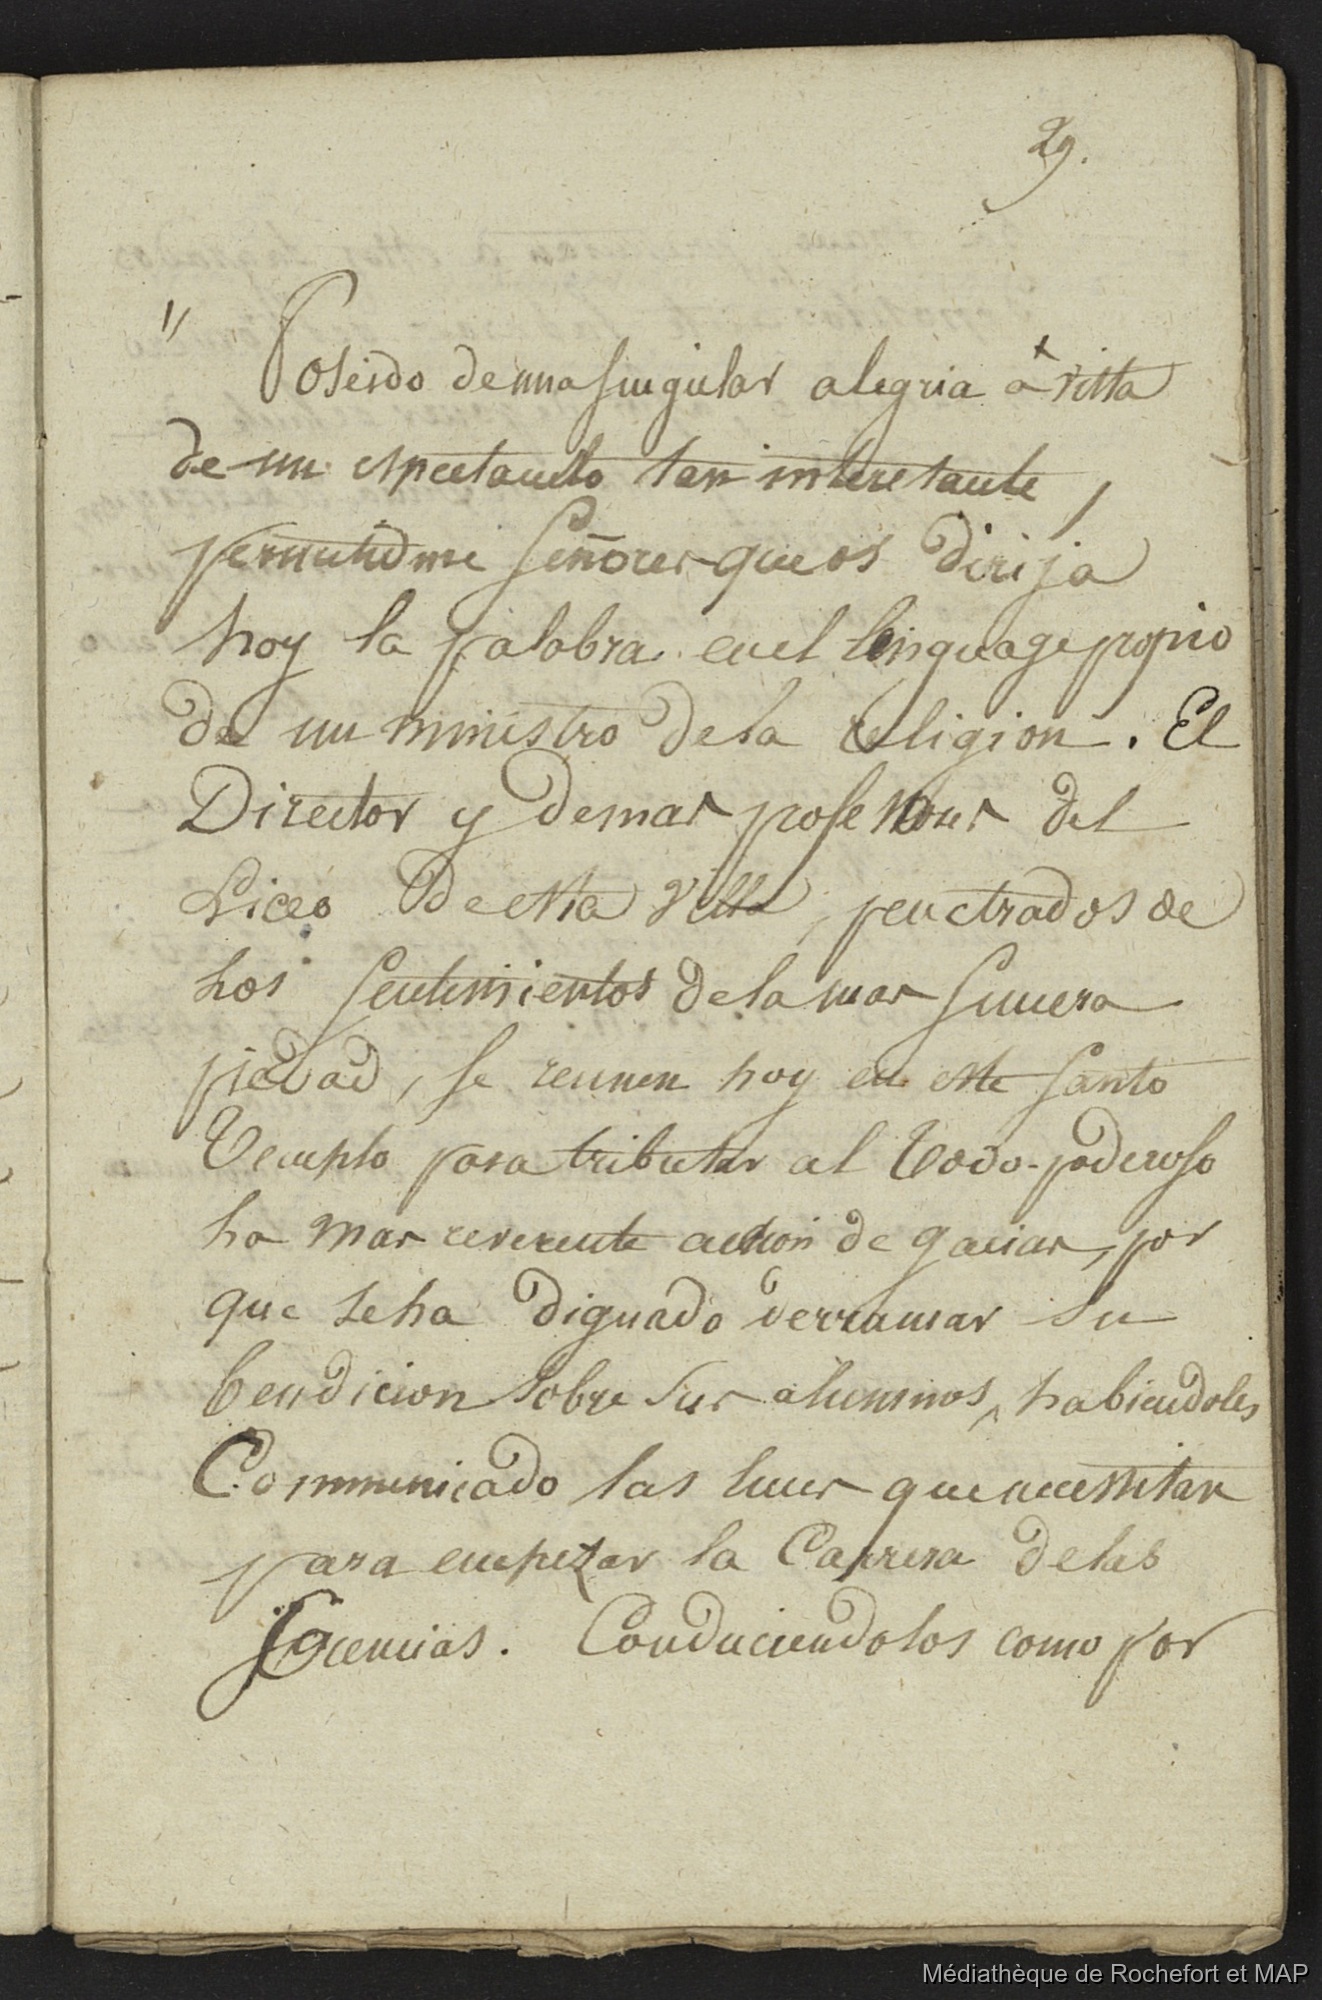 29.
" Poseido de una singular alegria â vista
de un espectaculo tan interesante,
permitidme Señores que os dirija
hoy la palabra en el linguage propio
de un ministro de la religion. El
Director y demas profesores del
Liceo de esta Villa, penetrados de
los sentimientos de la mas sincera
piedad, se reunen hoy en este santo
Templo para tributar al Todo-poderoso
la mas reverente accion de gracias, por
que se ha dignado derramar su
bendicion sobre sus alumnos, habiendoles
Communicado las luces que necessitan
para empezar la Carrera de las
Sciencias. Conduciendolos como por
Médiathèque de Rochefort et MAP